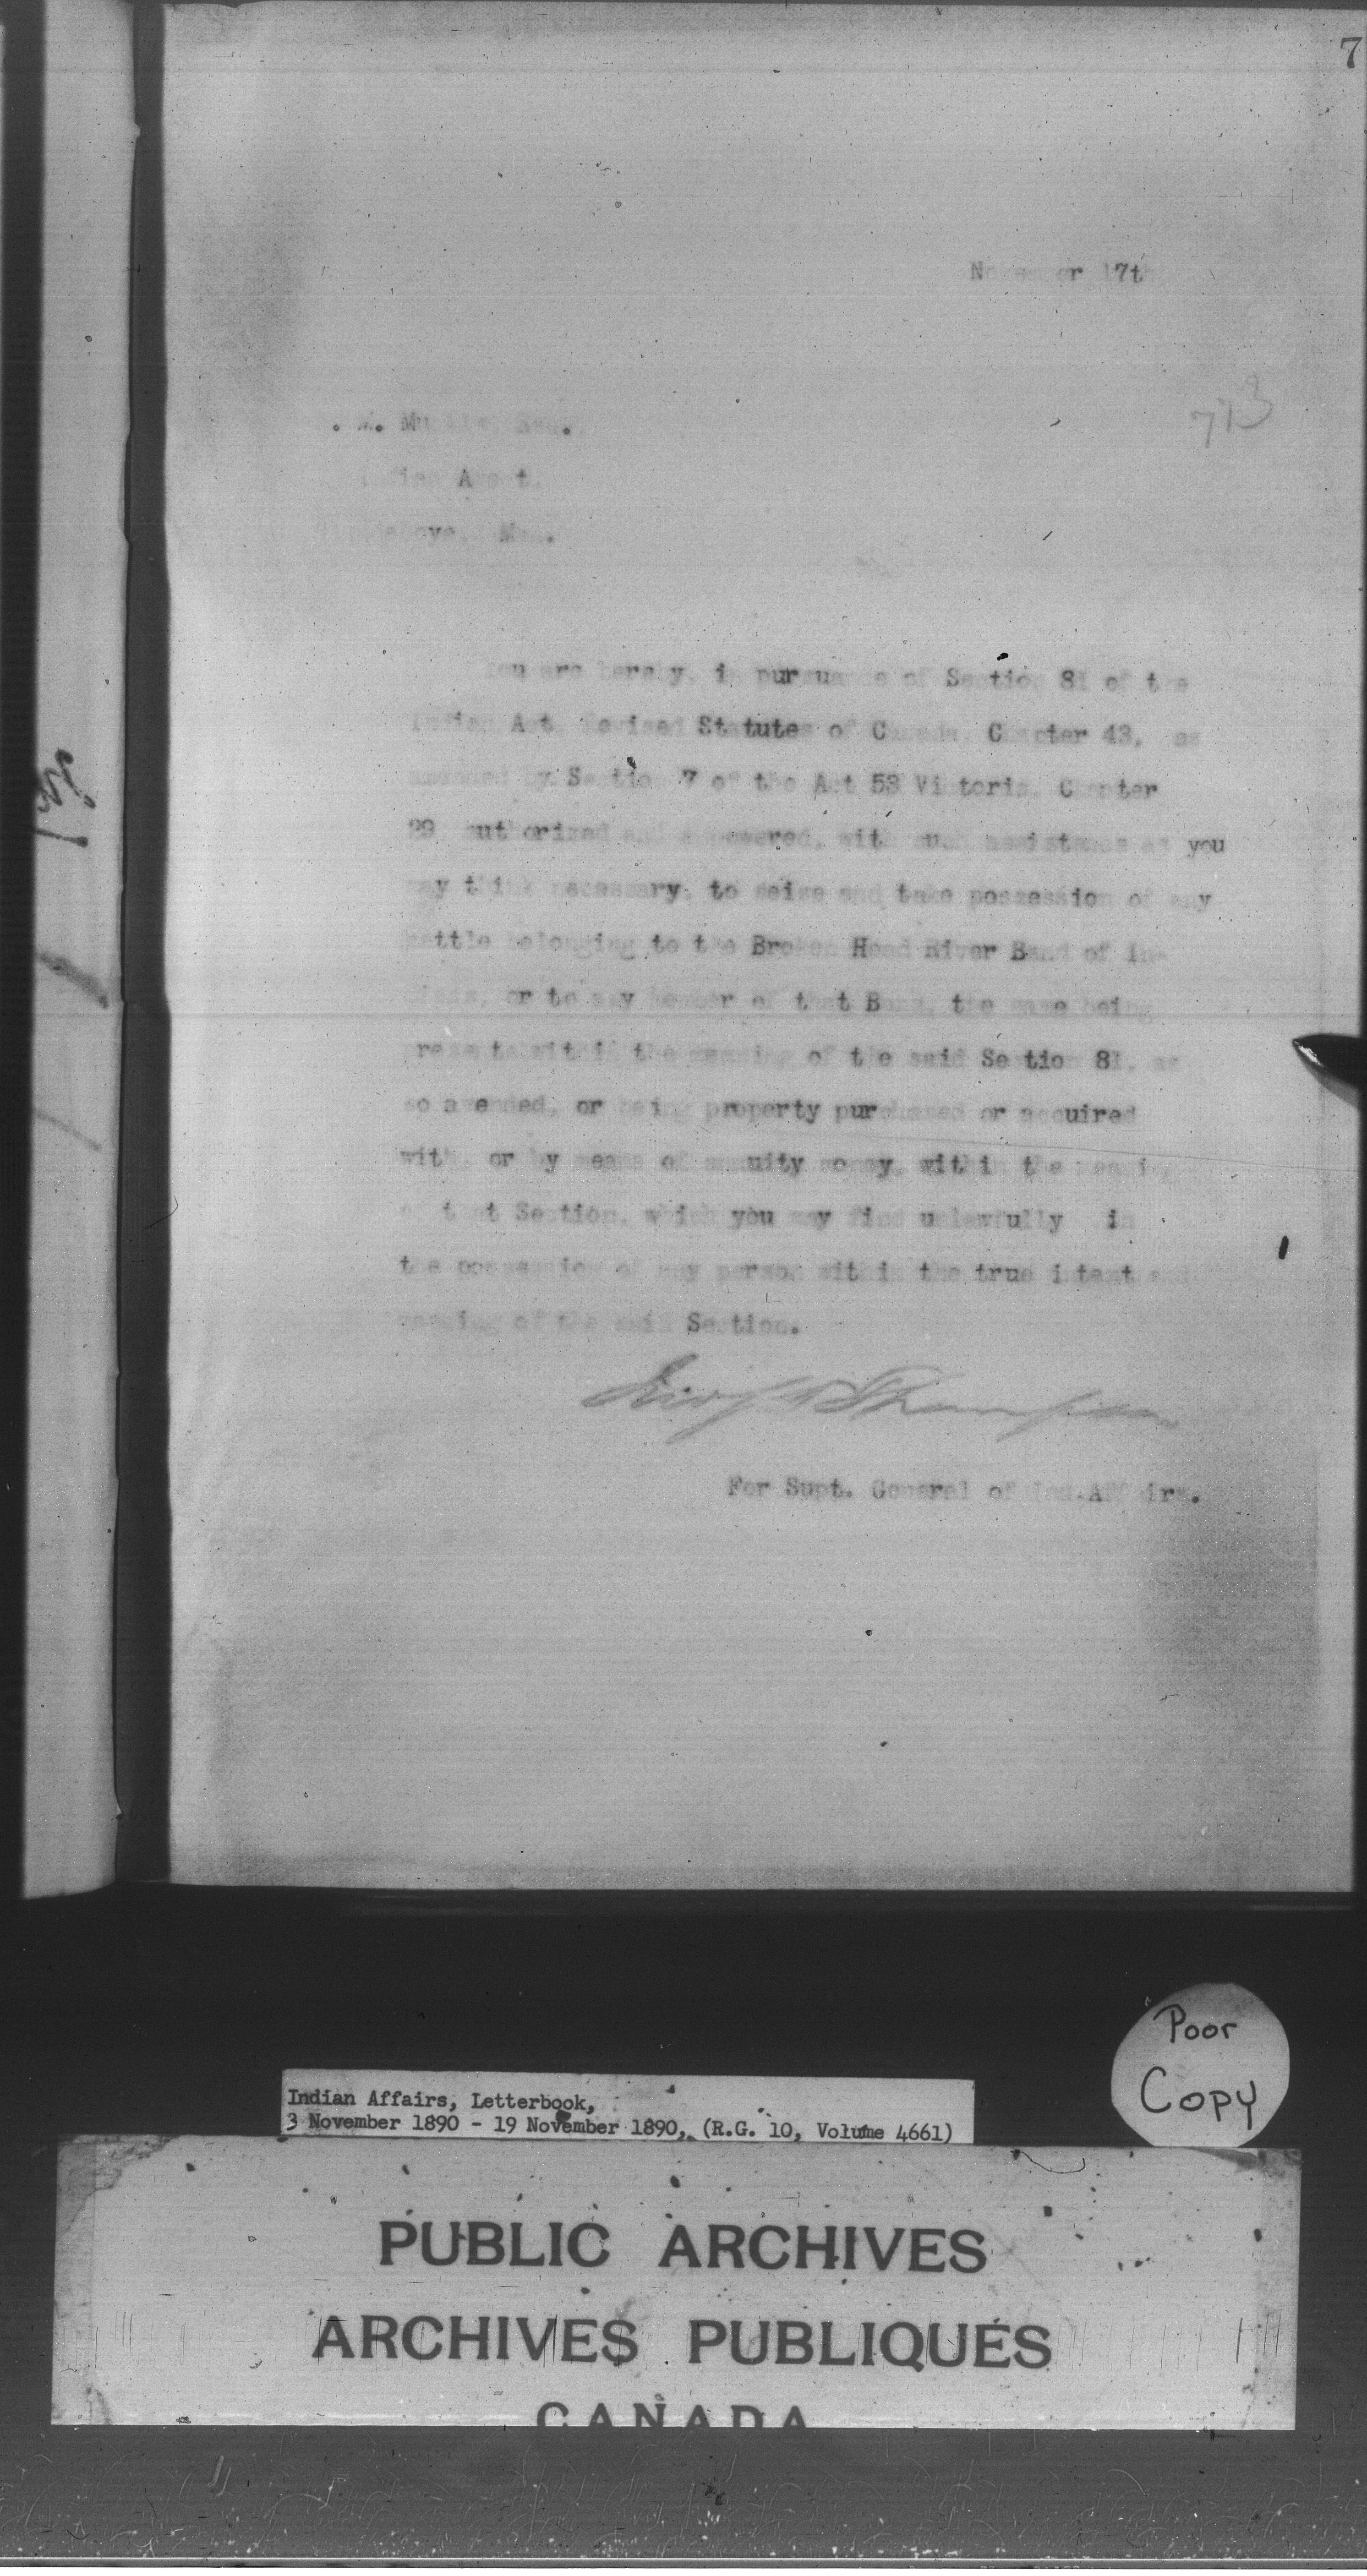 7
November 17th
713
. M. Muckle, Esq.
Indian Agent.
Man.
You are hereby, in pursuance of Section 81 of the
Indian Act, Revised Statutes of Canada, Chapter 43, as
amended by Section 7 of the Act 53 Victoria, Chapter
29, authorized and empowered, with such assistance as you
may think necessary, to seize and take possession of any
cattle belonging to the Broken Head River Band of In-
dians, or to any member of that Band, the same being
presents within the meaning of the said Section 81, as
so amended, or being property purchased or acquired
with, or by means of annuity money, within the meaning
of that Section, which you may find unlawfully in
the possession of any person within the true intent and
meaning of the said Section.
For Supt. General of Ind. Affairs.
Poor
Copy
Indian Affairs, Letterbook,
3 November 1890 - 19 November 1890, (R.G. 10, Volume 4661)
PUBLIC ARCHIVES
ARCHIVES PUBLIQUES
CANADA